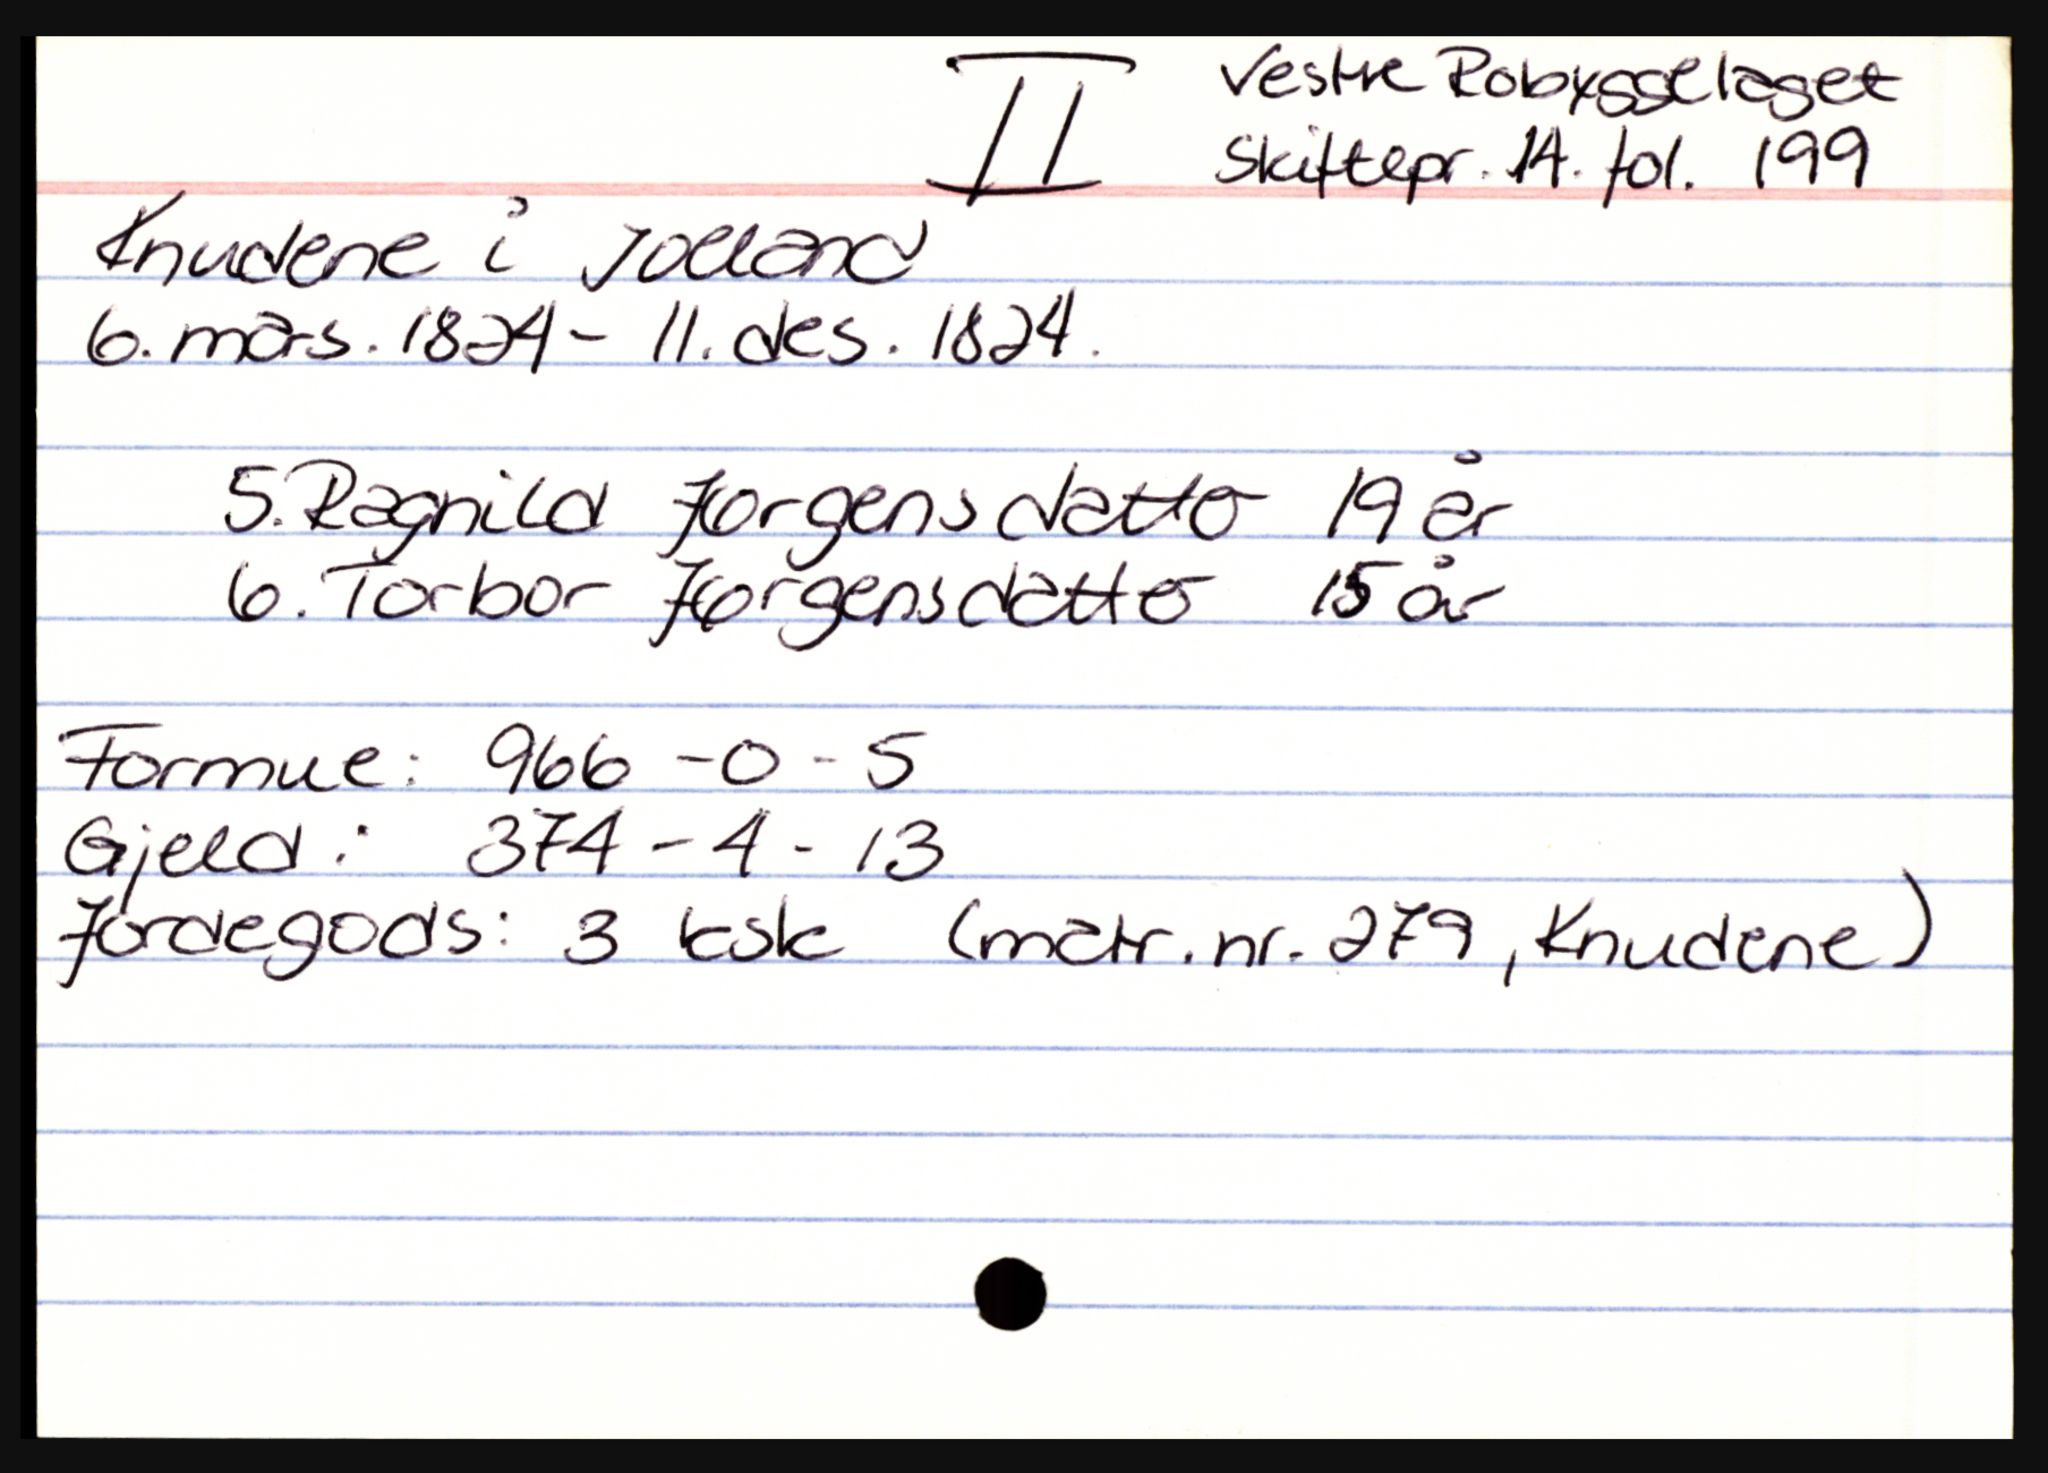 II
Vestre Robyggelaget
Skiftepr. 14. fol. 199
Knudene i Jolland
6. mars. 1824 - 11. des. 1824.
5. Ragnild Jørgensdatter 19 år
6. Torbor Jørgensdatter 15 år
Formue: 966 - 0 - 5
Gjeld: 374 - 4 - 13
Jordegods: 3 ksk (matr. nr. 279, Knudene)